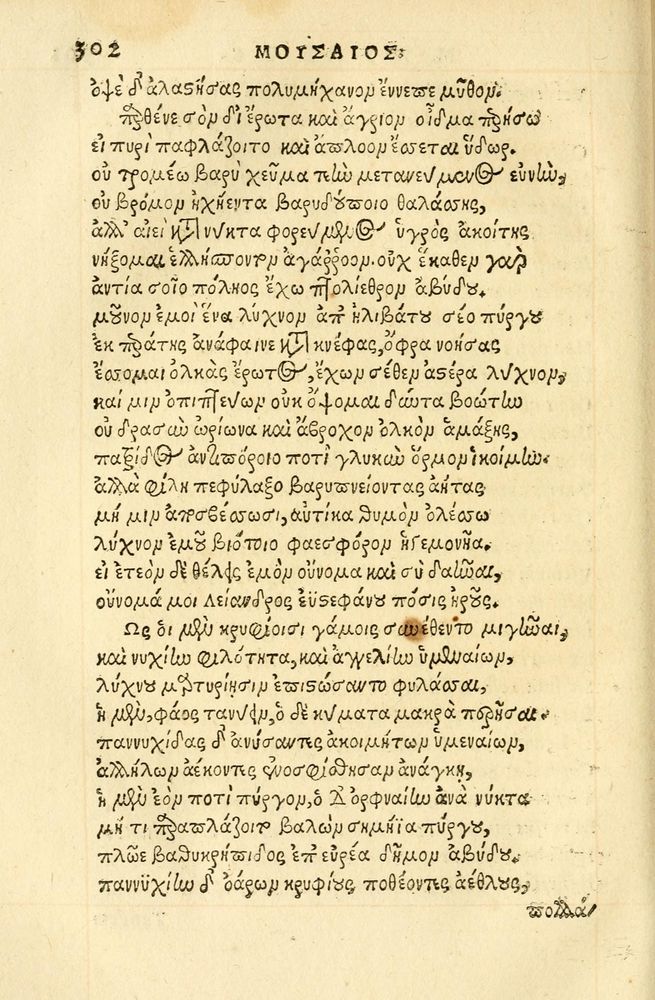 302 ΜΟΥΣΑΙΟΣ.
ὀψὲ δ' ἀλαστήσας πολυμήχανον ἔννεπε μῦθον.
Παρθένε σὸν δι' ἔρωτα καὶ ἄγριον οἶδμα περήσω
εἰ πυρὶ παφλάζοιτο καὶ ἄπλοον ἔσσεται ὕδωρ.
οὐ τρομέω βαρὺ χεῦμα τεὴν μετανεύμενος εὐνὴν,
οὐ βρόμον ἠχήεντα βαρυδούποιο θαλάσσης,
ἀλλ' αἰεὶ κατὰ νύκτα φορεύμενος ὑγρὸς ἀκοίτης
νήξομαι ἑλλήσποντον ἀγάρροον. οὐχ ἕκαθεν γὰρ
ἀντία σοῖο πόληος ἔχω πτολίεθρον ἀβύδου.
μοῦνον ἐμοὶ ἕνα λύχνον ἀπ' ἠλιβάτου σέο πύργου
ἐκ περάτης ἀνάφαινε κατὰ κνέφας, ὄφρα νοήσας
ἔσσομαι ὁλκὰς ἔρωτος, ἔχων σέθεν ἀστέρα λύχνον,
καί μιν ὀπιπτεύων οὐκ ὄψομαι δύοντα βοώτην
οὐ δρασὺν ὠρίωνα καὶ ἄβροχον ὁλκὸν ἁμάξης,
πατρίδος ἀντιπόροιο ποτὶ γλυκὺν ὅρμον ἱκοίμην.
ἀλλὰ φίλη πεφύλαξο βαρυπνείοντας ἀήτας
μή μιν ἀποσβέσσωσι, αὐτίκα θυμὸν ὀλέσσω
λύχνον ἐμοῦ βιότοιο φαεσφόρον ἡγεμονῆα.
εἰ ἐτεὸν δὲ θέλῃς ἐμὸν οὔνομα καὶ σὺ δαῆναι,
οὔνομά μοι Λείανδρος ἐϋστεφάνου πόσις ἡροῦς.
Ὣς οἱ μὲν κρυφίοισι γάμοις συνέθεντο μιγῆναι,
καὶ νυχίην φιλότητα, καὶ ἀγγελίην ὑμεναίων,
λύχνου μαρτυρίῃσιν ἐπιστώσαντο φυλάσσαι,
ἡ μὲν, φάος τανύειν, ὁ δὲ κύματα μακρὰ περῆσαι.
παννυχίδας δ' ἀνύσαντες ἀκοιμήτων ὑμεναίων,
ἀλλήλων ἀέκοντες ἐνοσφίσθησαν ἀνάγκῃ,
ἡ μὲν ἑὸν ποτὶ πύργον, ὁ δ' ὀρφναίην ἀνὰ νύκτα
μή τι παραπλάζοιτο βαλὼν σημήϊα πύργου,
πλῶε βαθυκρήπιδος ἐπ' εὐρέα δῆμον ἀβύδου.
παννυχίων δ' ὀάρων κρυφίους ποθέοντες ἀέθλους,
πολλά/